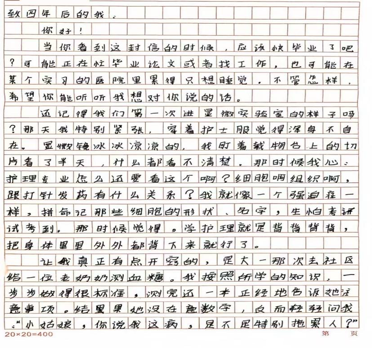 致四年后的我：
你好！
当你看到这封信的时候，应该快毕业了吧
？可能正在忙毕业论文或者找工作，也可能在
某个实习的医院里累得只想睡觉，不管怎样，
希望你能听听我想对你说的话。
还记得我们第一次进显微实验室的样子吗
？那天我特别紧张，穿着护士服觉得浑身不自
在。显微镜冰冰凉凉的，我盯着载物台上的切
片看了半天，什么都看不清楚。那时候我心：
护理专业怎么还要看这个啊？细胞啊组织啊，
跟打针发药有什么关系？我就像一个强迫在一
样，拼命记那些细胞的形状、名字，生怕老师
试考到。那时候觉得。学护理就是背背背背，
把身体里里外外都背下来就行了。
让我真正有点开窍的，是大一那次去社区
给一位老奶奶测血糖。我按照所学的知识，一
步步做得很标准，测完还一本正经地告诉她注
意事项。结果奶奶没在意数字，反而轻轻问我
：“小姑娘，你说我这病，是不是特别拖累人？”
20×20=400
第 页